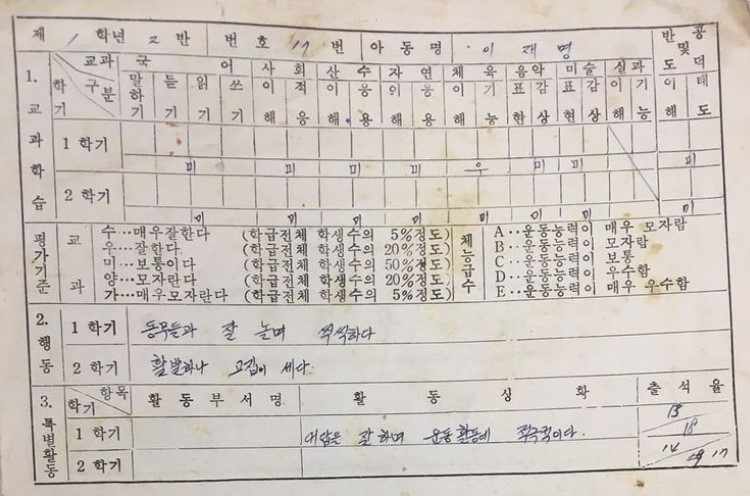 제 1 학년 2 반 번호 17 번 아동명 이재명
반공 및 도덕
1. 교과학습
교과 구분 학기
국어 사회 산수 자연 체육 음악 미술 실과
말하기 듣기 읽기 쓰기 이해 적응 이해 응용 이해 응용 이해 기능 표현 감상 표현 감상 이해 기능 이해 태도
1 학기
미 미 미 미 우 미 미 미
2 학기
미 미 미 미 미 미 미 미
평가기준 교과
수…매우잘한다 (학급전체 학생수의 5%정도)
우…잘한다 (학급전체 학생수의 20%정도)
미…보통이다 (학급전체 학생수의 50%정도)
양…모자란다 (학급전체 학생수의 20%정도)
가…매우모자란다 (학급전체 학생수의 5%정도)
체능급수
A‥운동능력이 매우 모자람
B‥운동능력이 모자람
C‥운동능력이 보통
D‥운동능력이 우수함
E‥운동능력이 매우 우수함
2. 행동
1 학기 동무들과 잘 놀며 착실하다
2 학기 활발하나 고집이 세다.
3. 특별활동
항목 학기 활동부서명 활동상황 출석율
1 학기 대답은 잘 하며 운동활동에 적극적이다. 13 18
2 학기 14 17